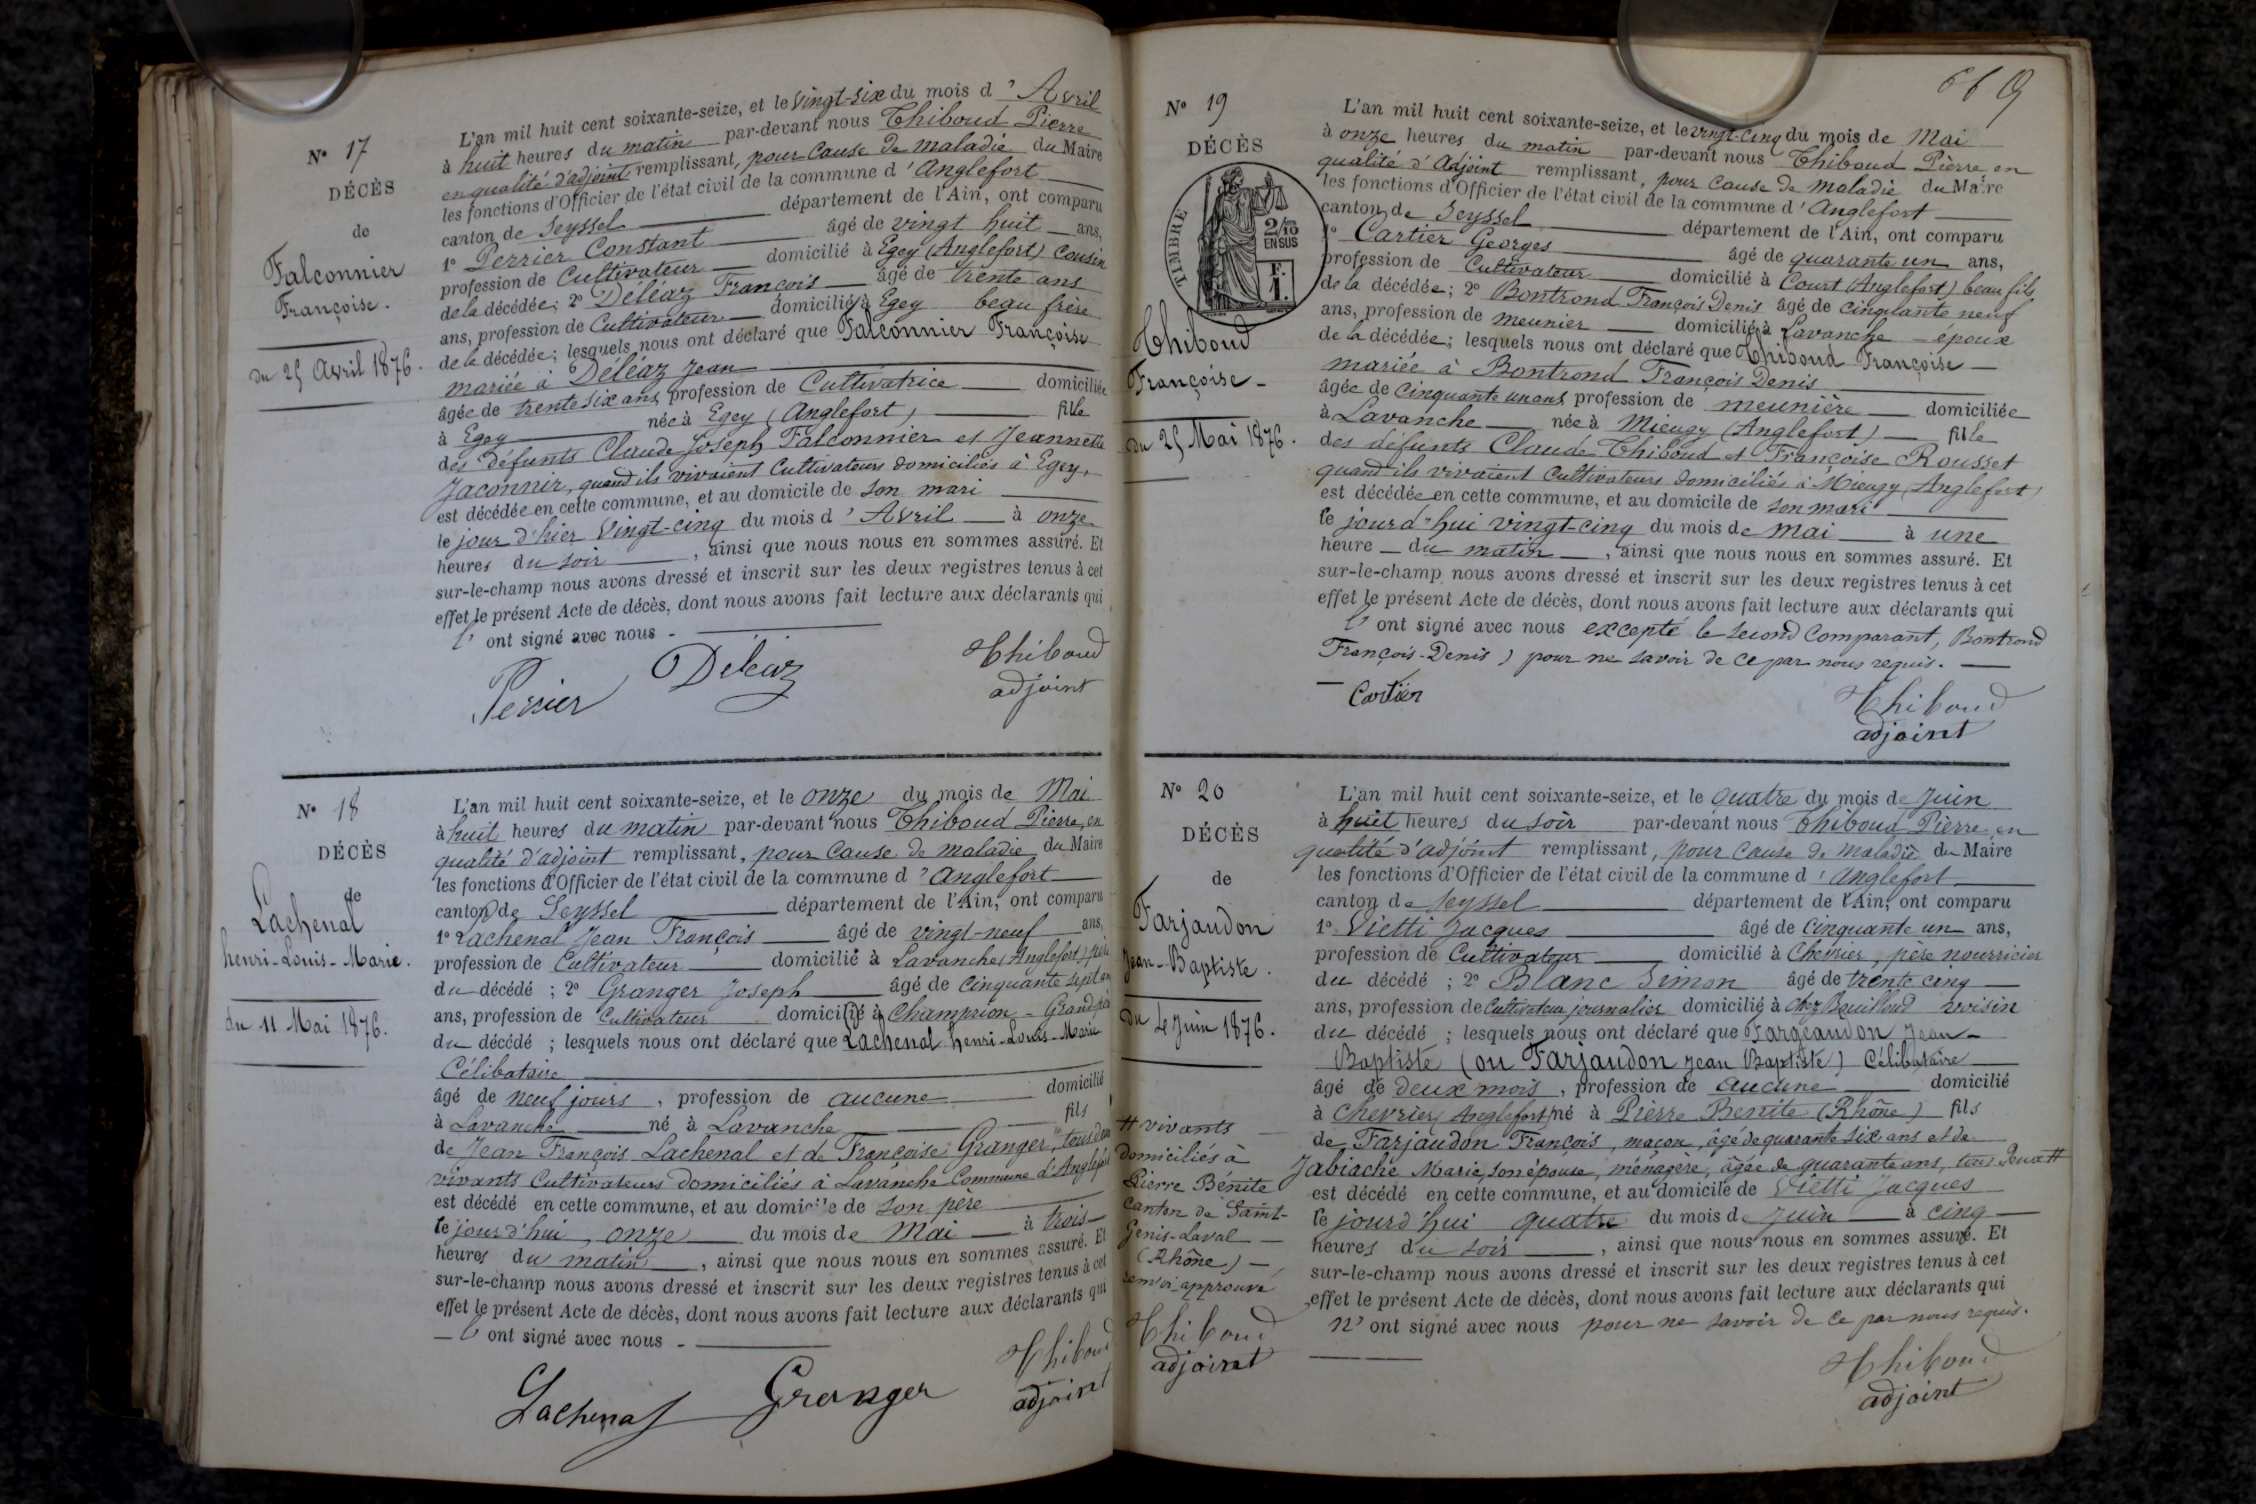 N° 17
DÉCÈS
de
Falconnier
Françoise.
du 25 Avril 1876.
L'an mil huit cent soixante-seize, et le vingt-six du mois d'Avril
à huit heures du matin par-devant nous Thiboud Pierre
en qualité d'adjoint remplissant, pour cause de maladie du Maire
les fonctions d'Officier de l'état civil de la commune d'Anglefort
canton de Seyssel département de l'Ain, ont comparu
1° Perrier Constant âgé de vingt huit ans,
profession de Cultivateur domicilié à Egey (Anglefort) Cousin
de la décédée; 2° Déléaz François âgé de trente ans
ans, profession de Cultivateur domicilié à Egey beau frère
de la décédée; lesquels nous ont déclaré que Falconnier Françoise
mariée à Déléaz Jean
âgée de trente six ans, profession de Cultivatrice domiciliée
à Egey née à Egey (Anglefort) fille
des défunts Claude Joseph Falconnier et Jeannette
Jaconnier, quand ils vivaient Cultivateurs domiciliés à Egey,
est décédée en cette commune, et au domicile de son mari
le jour d'hier Vingt-cinq du mois d'Avril à onze
heures du soir, ainsi que nous nous en sommes assuré. Et
sur-le-champ nous avons dressé et inscrit sur les deux registres tenus à cet
effet le présent Acte de décès, dont nous avons fait lecture aux déclarants qui
l'ont signé avec nous -
Perrier Déléaz Thiboud
adjoint
N° 18
DÉCÈS
de
Lachenal
henri-Louis-Marie.
du 11 Mai 1876.
L'an mil huit cent soixante-seize, et le onze du mois de Mai
à huit heures du matin par-devant nous Thiboud Pierre, en
qualité d'adjoint remplissant, pour cause de maladie du Maire
les fonctions d'Officier de l'état civil de la commune d'Anglefort
canton de Seyssel département de l'Ain, ont comparu
1° Lachenal Jean François âgé de vingt-neuf ans,
profession de Cultivateur domicilié à Lavanche (Anglefort) père
du décédé; 2° Granger Joseph âgé de cinquante sept ans
ans, profession de Cultivateur domicilié à Champrion - Grand père
du décédé; lesquels nous ont déclaré que Lachenal henri-Louis-Marie
Célibataire
âgé de neuf jours, profession de aucune domicilié
à Lavanche né à Lavanche fils
de Jean François Lachenal et de Françoise Granger, tous deux
vivants Cultivateurs domiciliés à Lavanche Commune d'Anglefort
est décédé en cette commune, et au domicile de son père
le jour d'hui onze du mois de Mai à trois
heures du matin, ainsi que nous nous en sommes assuré. Et
sur-le-champ nous avons dressé et inscrit sur les deux registres tenus à cet
effet le présent Acte de décès, dont nous avons fait lecture aux déclarants qui
- l'ont signé avec nous -
Lachenal Granger Thiboud
adjoint
669
N° 19
DÉCÈS
TIMBRE
2/10
EN SUS
F.
1.
Thiboud
Françoise -
du 25 Mai 1876.
L'an mil huit cent soixante-seize, et le vingt-cinq du mois de Mai
à onze heures du matin par-devant nous Thiboud Pierre en
qualité d'Adjoint remplissant, pour cause de maladie du Maire
les fonctions d'Officier de l'état civil de la commune d'Anglefort
canton de Seyssel département de l'Ain, ont comparu
1° Cartier Georges âgé de quarante un ans,
profession de Cultivateur domicilié à Court (Anglefort) beau fils
de la décédée; 2° Bontrond François Denis âgé de cinquante neuf
ans, profession de meunier domicilié à Lavanche - époux
de la décédée; lesquels nous ont déclaré que Thiboud Françoise
mariée à Bontrond François Denis
âgée de cinquante un ans, profession de meunière domiciliée
à Lavanche née à Mieugy (Anglefort) fille
des défunts Claude Thiboud et Françoise Rousset
quand ils vivaient Cultivateurs domiciliés à Mieugy (Anglefort)
est décédée en cette commune, et au domicile de son mari
le jour d'hui vingt-cinq du mois de mai à une
heure du matin, ainsi que nous nous en sommes assuré. Et
sur-le-champ nous avons dressé et inscrit sur les deux registres tenus à cet
effet le présent Acte de décès, dont nous avons fait lecture aux déclarants qui
l'ont signé avec nous excepté le second Comparant, Bontrond
François-Denis) pour ne savoir de ce par nous requis.
Cartier Thiboud
adjoint
N° 20
DÉCÈS
de
Farjaudon
Jean-Baptiste.
du 4 Juin 1876.
L'an mil huit cent soixante-seize, et le quatre du mois de Juin
à huit heures du soir par-devant nous Thiboud Pierre en
qualité d'adjoint remplissant, pour cause de maladie du Maire
les fonctions d'Officier de l'état civil de la commune d'Anglefort
canton de Seyssel département de l'Ain, ont comparu
1° Vietti Jacques âgé de Cinquante un ans,
profession de Cultivateur domicilié à Chevrier, père nourricier
du décédé; 2° Blanc Simon âgé de trente cinq
ans, profession de Cultivateur journalier domicilié à Chez Bouilloud voisin
du décédé; lesquels nous ont déclaré que Fargeaudon Jean-
Baptiste (ou Farjaudon Jean Baptiste) Célibataire
âgé de deux mois, profession de aucune domicilié
à Chevrier (Anglefort) né à Pierre Bénite (Rhône) fils
de Farjaudon François, maçon, âgé de quarante six ans et de
Jabiache Marie, son épouse, ménagère, âgée de quarante ans, tous deux #
est décédé en cette commune, et au domicile de Vietti Jacques
le jour d'hui quatre du mois de Juin à cinq
heures du soir, ainsi que nous nous en sommes assuré. Et
sur-le-champ nous avons dressé et inscrit sur les deux registres tenus à cet
effet le présent Acte de décès, dont nous avons fait lecture aux déclarants qui
n'ont signé avec nous pour ne savoir de ce par nous requis.
Thiboud
adjoint
# vivants
domiciliés à
Pierre Bénite
canton de Saint-
Genis-Laval
(Rhône) -
renvoi approuvé
Thiboud
adjoint